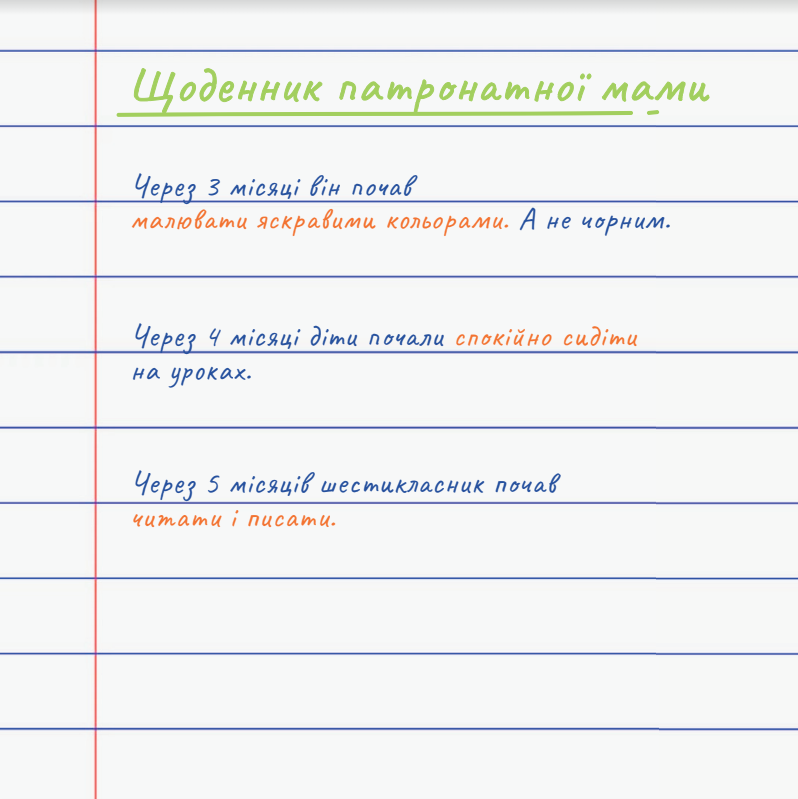 Щоденник патронатної мами
Через 3 місяці він почав
малювати яскравими кольорами. А не чорним.
Через 4 місяці діти почали спокійно сидіти
на уроках.
Через 5 місяців шестикласник почав
читати і писати.